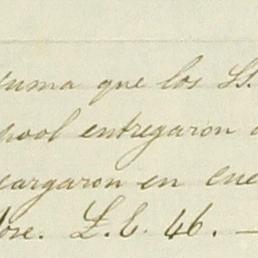 suma que los SS.
pool entregaron a
cargaron en cue
Jose. L.E. 46. —